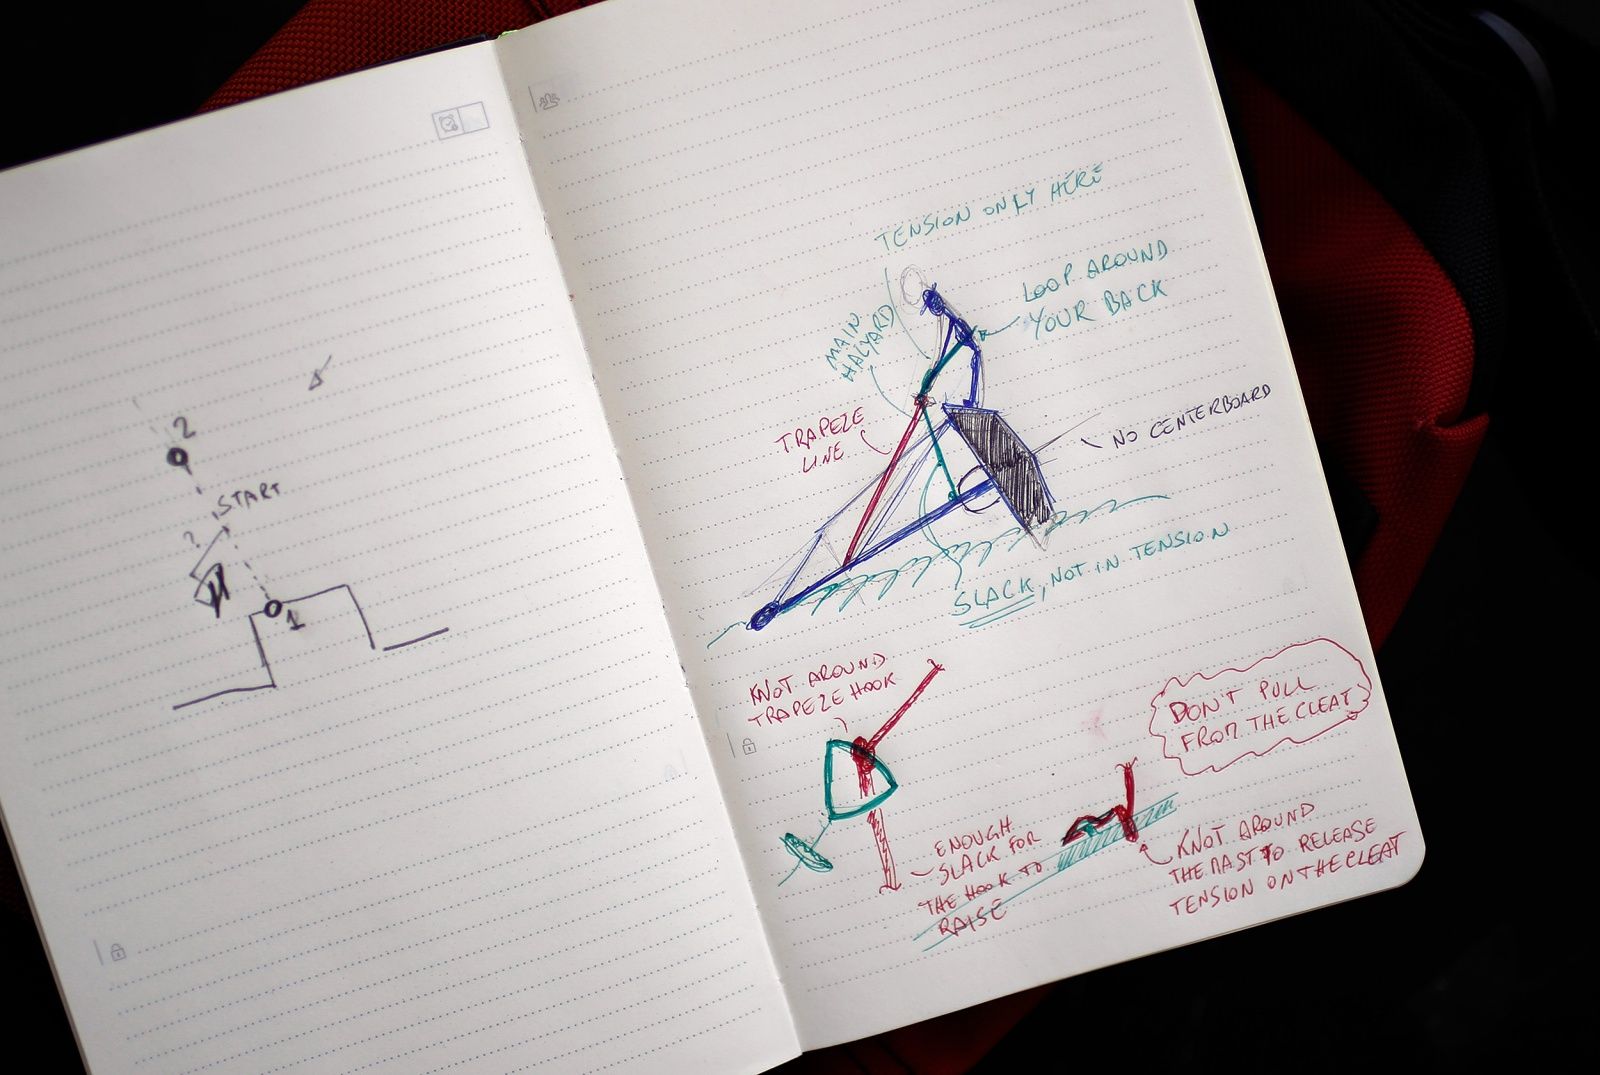 2
START
?
1
TENSION ONLY HERE
LOOP AROUND
YOUR BACK
MAIN
HALYARD
TRAPEZE
LINE
NO CENTERBOARD
SLACK, NOT IN TENSION
KNOT AROUND
TRAPEZE HOOK
DON'T PULL
FROM THE CLEAT
ENOUGH
SLACK FOR
THE HOOK TO
RAISE
KNOT AROUND
THE MAST TO RELEASE
TENSION ON THE CLEAT